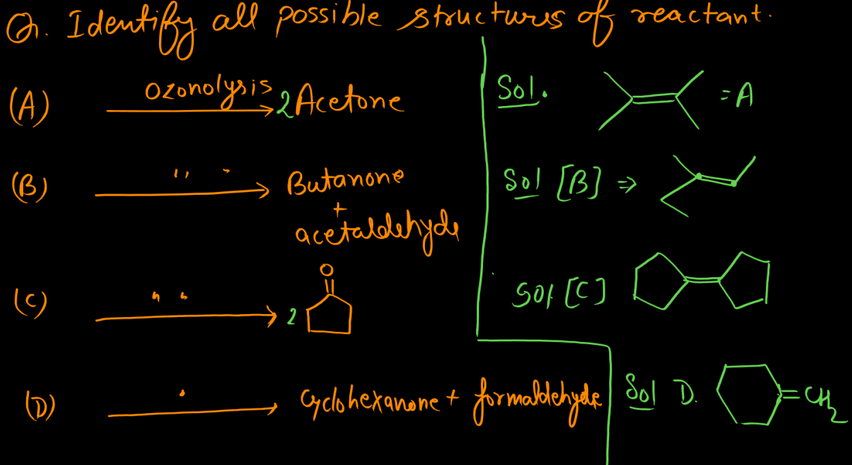 Q. Identify all possible structures of reactant.
(A) Ozonolysis 2 Acetone
Sol. = A
(B) " " Butanone
+
acetaldehyde
Sol [B] ⇒
(C) " " 2 O
Sol [C]
(D) " Cyclohexanone + formaldehyde
Sol D. = CH2